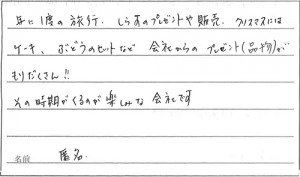 年に1度の旅行. しらすのプレゼントや販売. クリスマスには
ケーキ、ぶどうのセットなど 会社からの プレゼント(品物)が
もりだくさん!!
その時期がくるのが楽しみな 会社です
名前 匿名.